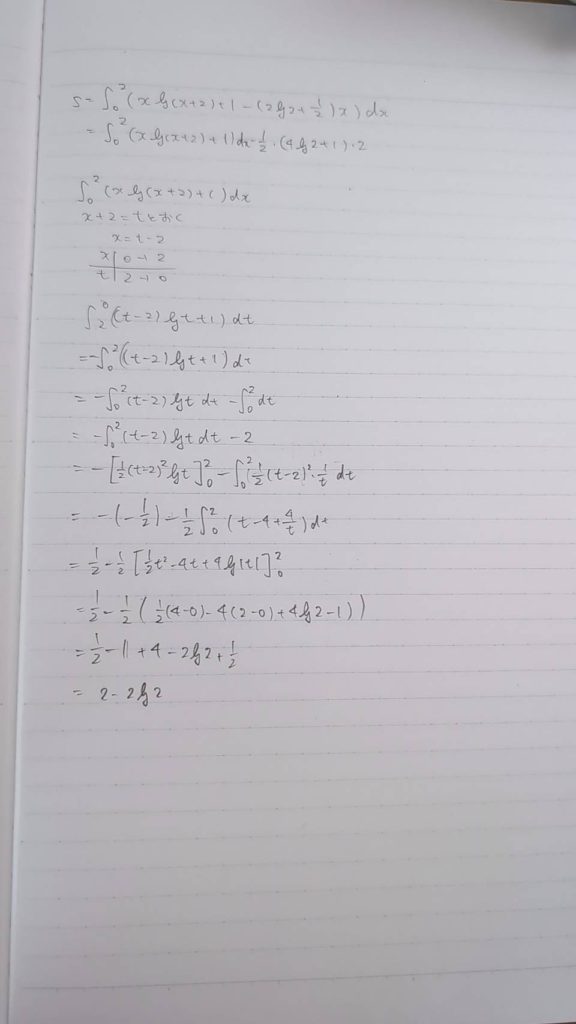 S = ∫₀² (x log(x+2) + 1 - (2log2 + 1/2)x) dx
= ∫₀² (x log(x+2) + 1) dx - 1/2 · (4log2 + 1) · 2
∫₀² (x log(x+2) + 1) dx
x+2 = t とおく
x = t-2
x | 0 → 2
t | 2 → 0
∫₂⁰ ((t-2) log t + 1) dt
= -∫₀² ((t-2) log t + 1) dt
= -∫₀² (t-2) log t dt - ∫₀² dt
= -∫₀² (t-2) log t dt - 2
= -[1/2(t-2)² log t]₀² - ∫₀² 1/2(t-2)² · 1/t dt
= -(-1/2) - 1/2 ∫₀² (t - 4 + 4/t) dt
= 1/2 - 1/2 [1/2t² - 4t + 4log|t|]₀²
= 1/2 - 1/2 (1/2(4-0) - 4(2-0) + 4log2 - 1))
= 1/2 - 1 + 4 - 2log2 + 1/2
= 2 - 2log2